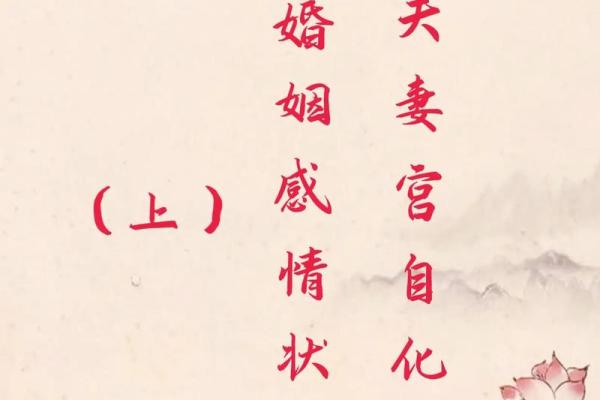 夫妻宫自化
婚姻感情状
（上）